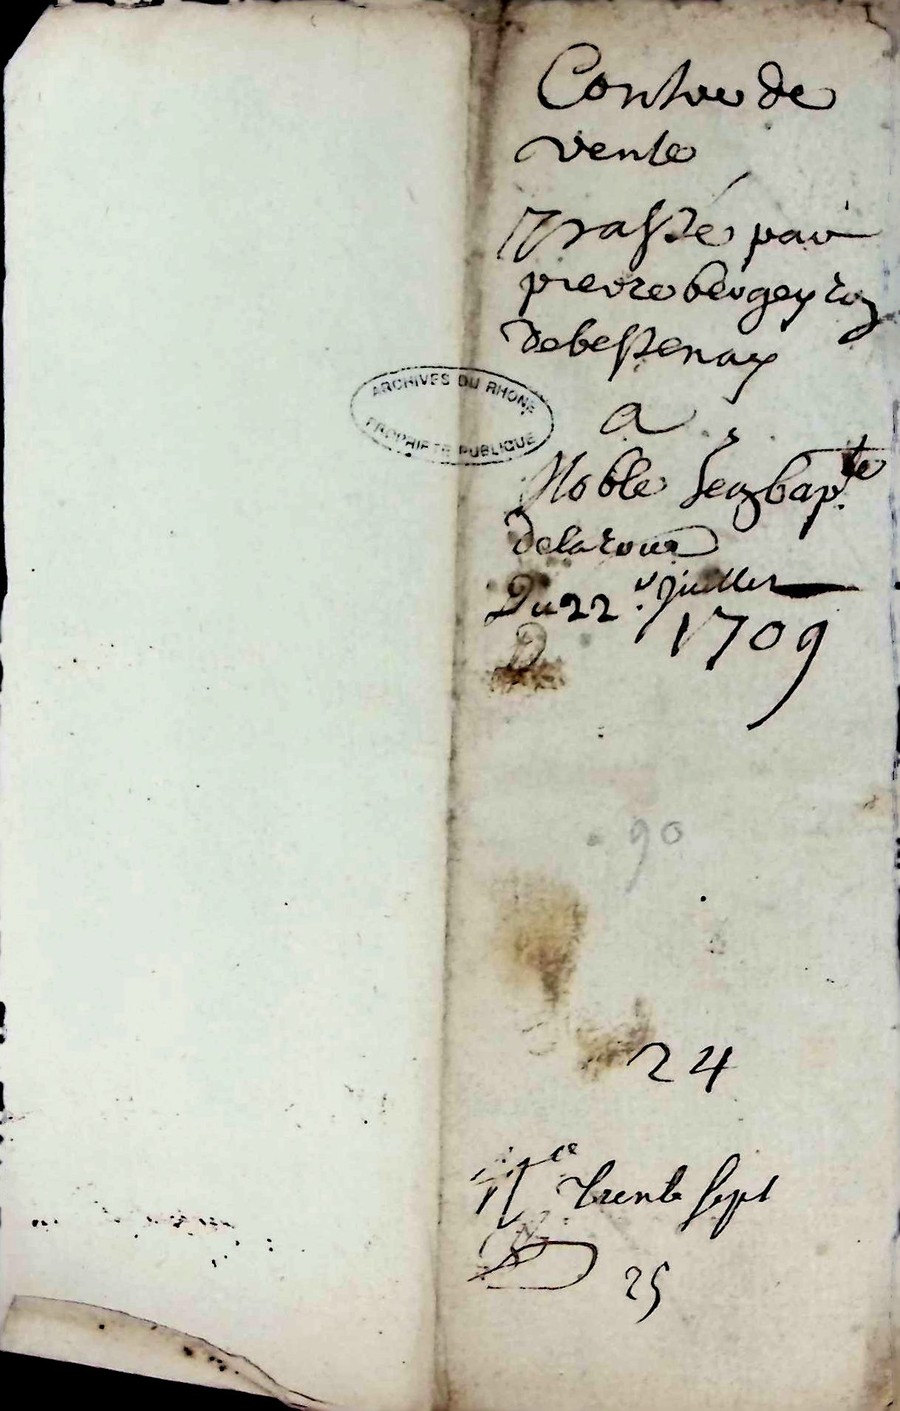 Contre de
vente
passé par
pierre bergeyron
de bessenay
ARCHIVES DU RHONE
PROPRIETE PUBLIQUE
a
Noble Jean bapte
delaroue
Du 22e Juillet
1709
D
90
24
Cce trente sept
25